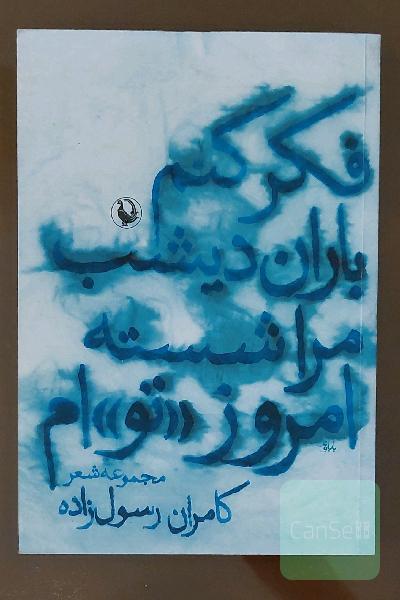 فکر کنم
باران دیشب
مرا شسته
امروز «تو» ام
مجموعه شعر
کامران رسول‌زاده
CanSell